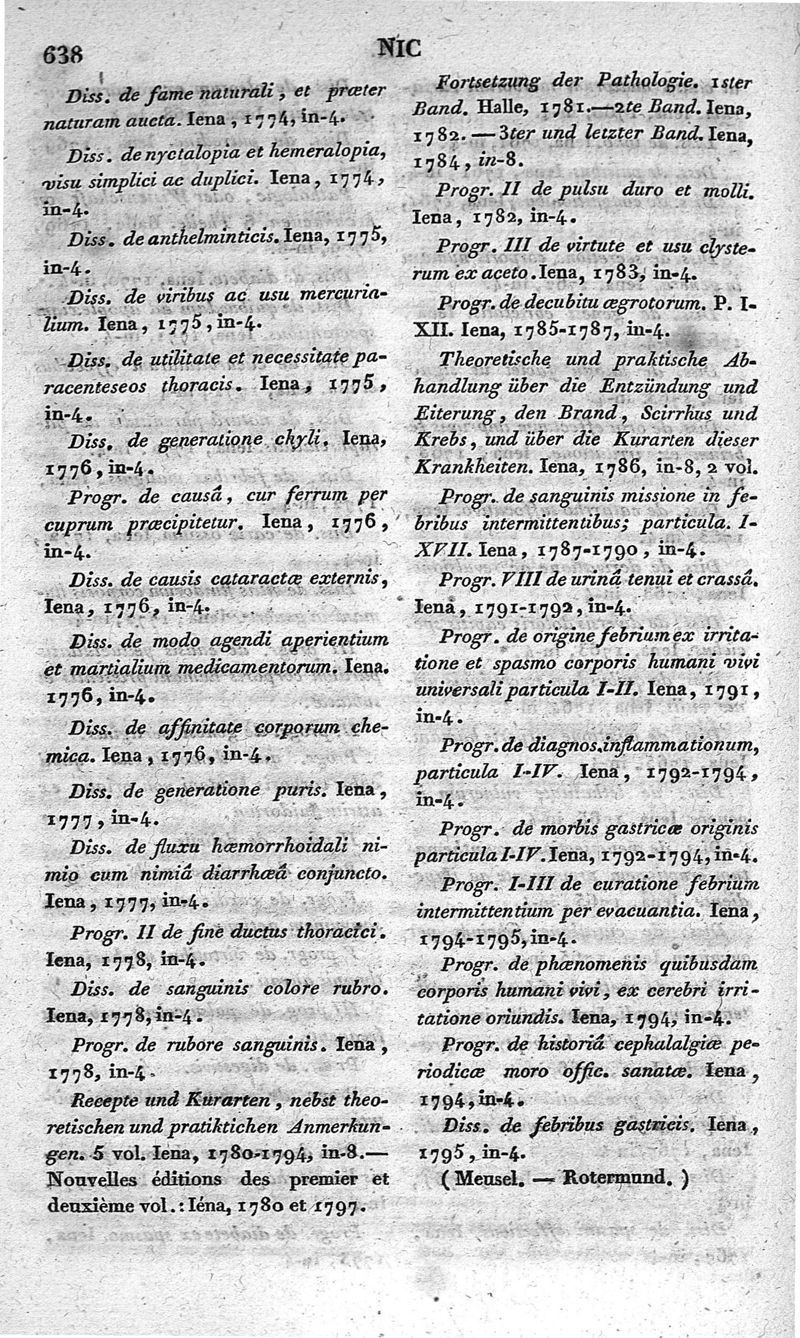 638
NIC
Diss. de fame naturali, et præter
naturam aucta. Iena, 1774, in-4.
Diss. de nyctalopia et hemeralopia,
visu simplici ac duplici. Iena, 1774,
in-4.
Diss. de anthelminticis. Iena, 1775,
in-4.
Diss. de viribus ac usu mercuria-
lium. Iena, 1775, in-4.
Diss. de utilitate et necessitate pa-
racenteseos thoracis. Iena, 1775,
in-4.
Diss. de generatione chyli. Iena,
1776, in-4.
Progr. de causâ, cur ferrum per
cuprum præcipitetur. Iena, 1776,
in-4.
Diss. de causis cataractæ externis,
Iena, 1776, in-4.
Diss. de modo agendi aperientium
et martialium medicamentorum. Iena.
1776, in-4.
Diss. de affinitate corporum che-
mica. Iena, 1776, in-4.
Diss. de generatione puris. Iena,
1777, in-4.
Diss. de fluxu hæmorrhoidali ni-
mio cum nimiâ diarrhæâ conjuncto.
Iena, 1777, in-4.
Progr. II de fine ductus thoracici.
Iena, 1778, in-4.
Diss. de sanguinis colore rubro.
Iena, 1778, in-4.
Progr. de rubore sanguinis. Iena,
1778, in-4.
Recepte und Kurarten, nebst theo-
retischen und pratiktichen Anmerkun-
gen. 5 vol. Iena, 1780-1794, in-8.—
Nouvelles éditions des premier et
deuxième vol.: Iéna, 1780 et 1797.
Fortsetzung der Pathologie. 1ster
Band. Halle, 1781.—2te Band. Iena,
1782.—3ter und letzter Band. Iena,
1784, in-8.
Progr. II de pulsu duro et molli.
Iena, 1782, in-4.
Progr. III de virtute et usu clyste-
rum ex aceto. Iena, 1783, in-4.
Progr. de decubitu ægrotorum. P. I-
XII. Iena, 1785-1787, in-4.
Theoretische und praktische Ab-
handlung über die Entzündung und
Eiterung, den Brand, Scirrhus und
Krebs, und über die Kurarten dieser
Krankheiten. Iena, 1786, in-8, 2 vol.
Progr. de sanguinis missione in fe-
bribus intermittentibus; particula. I-
XVII. Iena, 1787-1790, in-4.
Progr. VIII de urinâ tenui et crassâ.
Ienâ, 1791-1792, in-4.
Progr. de origine febrium ex irrita-
tione et spasmo corporis humani vivi
universali particula I-II. Iena, 1791,
in-4.
Progr. de diagnos. inflammationum,
particula I-IV. Iena, 1792-1794,
in-4.
Progr. de morbis gastricæ originis
particula I-IV. Iena, 1792-1794, in-4.
Progr. I-III de curatione febrium
intermittentium per evacuantia. Iena,
1794-1795, in-4.
Progr. de phænomenis quibusdam
corporis humani vivi, ex cerebri irri-
tatione oriundis. Iena, 1794, in-4.
Progr. de historiâ cephalalgiæ pe-
riodicæ moro offic. sanatæ. Iena,
1794, in-4.
Diss. de febribus gastricis. Iena,
1795, in-4.
(Meusel. — Rotermund.)